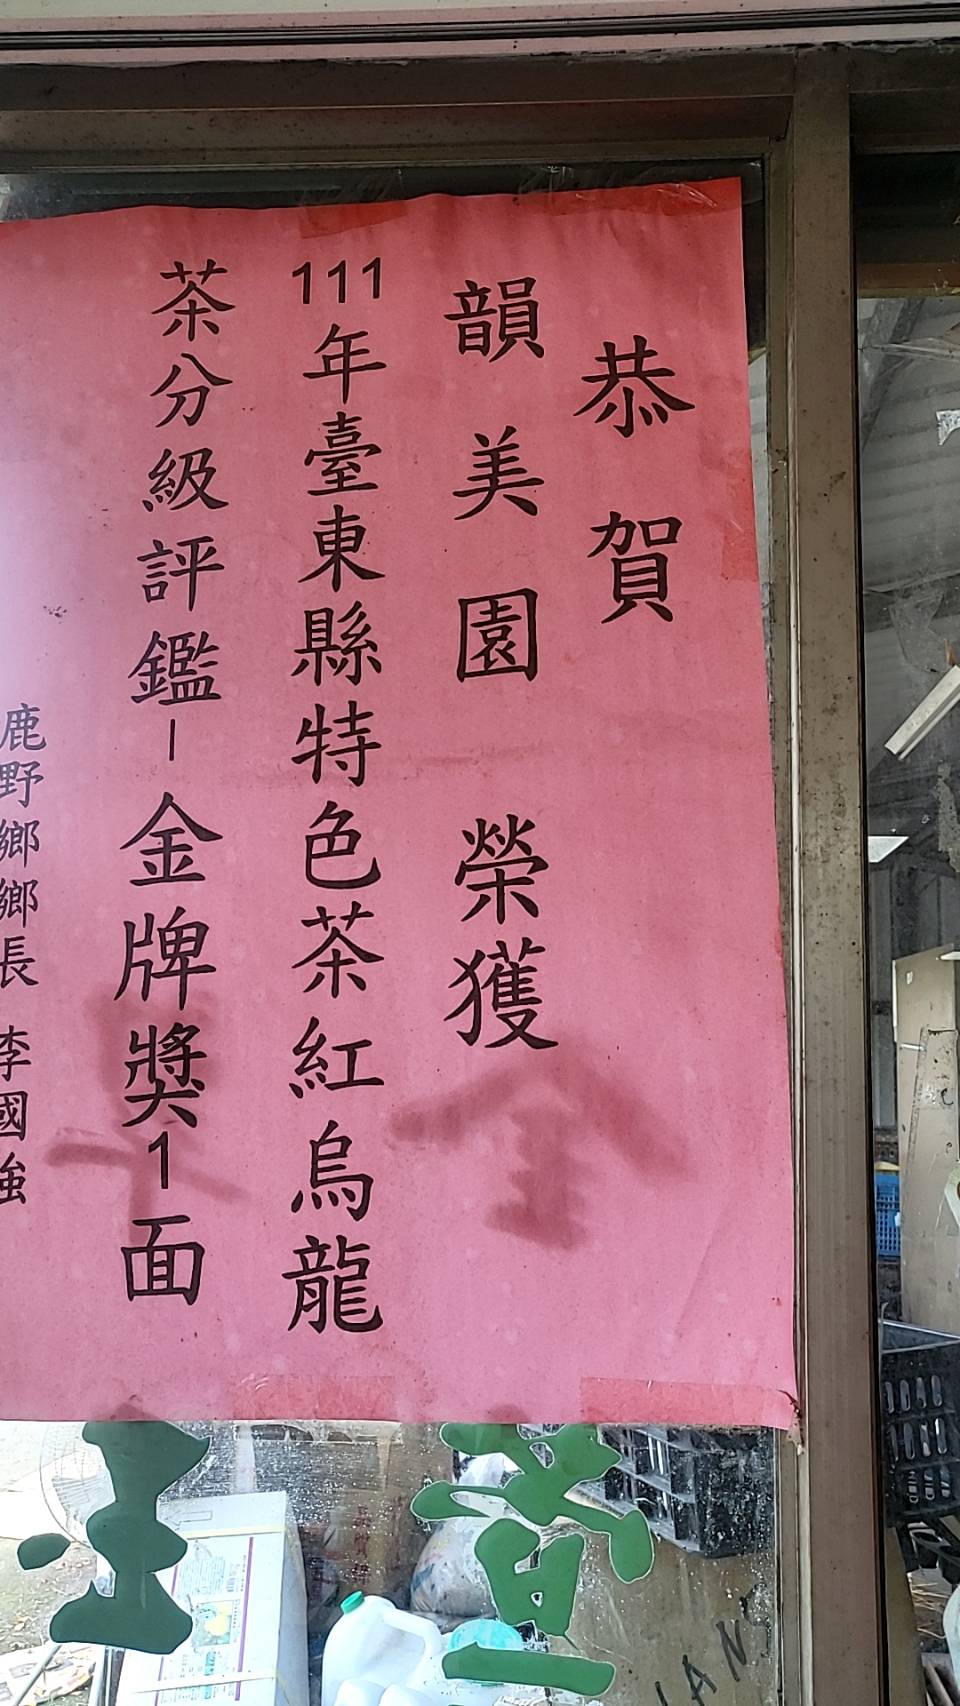 恭賀
韻美園 榮獲
111年臺東縣特色茶紅烏龍
茶分級評鑑－金牌獎1面
鹿野鄉鄉長 李國強
IAN